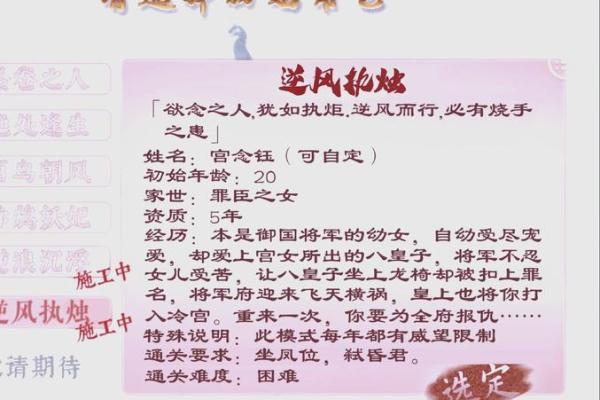 逆风执烛
「欲念之人,犹如执炬.逆风而行,必有烧手
之患」
姓名：宫念钰（可自定）
初始年龄：20
家世：罪臣之女
资质：5年
经历：本是御国将军的幼女，自幼受尽宠
爱，却爱上宫女所出的八皇子，将军不忍
女儿受苦，让八皇子坐上龙椅却被扣上罪
名，将军府迎来飞天横祸，皇上也将你打
入冷宫。重来一次，你要为全府报仇……
特殊说明：此模式每年都有威望限制
通关要求：坐凤位，弑昏君。
通关难度：困难
选定
之人
处逢生
鸟朝凤
妖妃
浪沉浮
施工中
逆风执烛
施工中
请期待